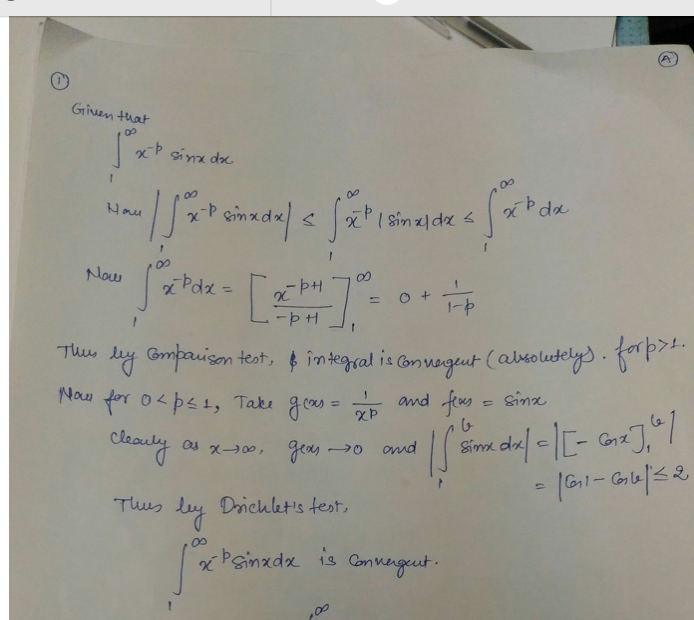 ① A
Given that
∫₁^∞ x^-p sinx dx
Now |∫₁^∞ x^-p sinx dx| ≤ ∫₁^∞ x^-p |sinx| dx ≤ ∫₁^∞ x^-p dx
Now ∫₁^∞ x^-p dx = [x^-p+1 / -p+1]₁^∞ = 0 + 1/1-p
Thus by Comparison test, integral is convergent (absolutely). for p>1.
Now for 0<p≤1, Take g(x) = 1/x^p and f(x) = sinx
Clearly as x→∞, g(x) →0 and |∫₁^b sinx dx| = |[-Cosx]₁^b|
= |Cos1 - Cosb| ≤ 2
Thus by Drichlet's test,
∫₁^∞ x^-p sinx dx is Convergent.
∞